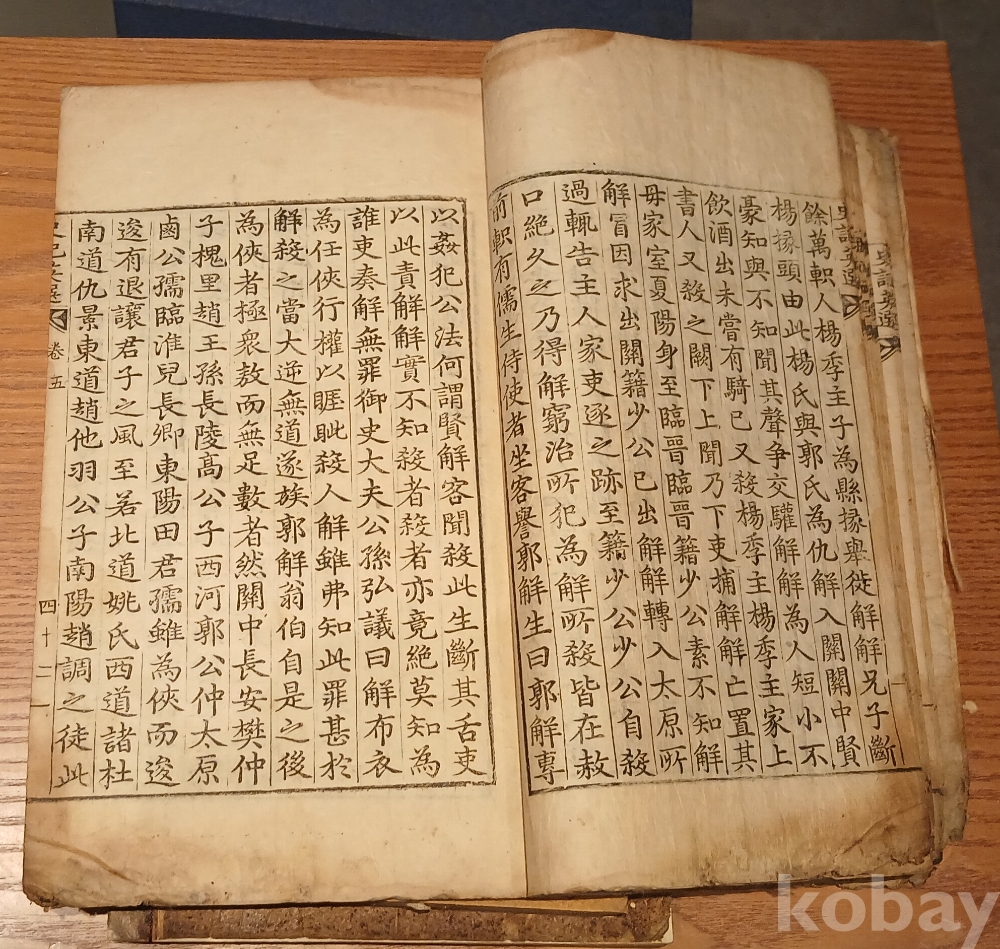 史記英選
史記英選
餘萬軹人楊季主子為縣掾舉徙解解兄子斷
楊掾頭由此楊氏與郭氏為仇解入關關中賢
豪知與不知聞其聲争交驩解解為人短小不
飲酒出未嘗有騎已又殺楊季主楊季主家上
書人又殺之闕下上聞乃下吏捕解解亡置其
母家室夏陽身至臨晉臨晉籍少公素不知解
解冒因求出關籍少公已出解解轉入太原所
過輒告主人家吏逐之跡至籍少公少公自殺
口絶久之乃得解窮治所犯為解所殺皆在赦
前軹有儒生侍使者坐客譽郭解生曰郭解專
以姦犯公法何謂賢解客聞殺此生斷其舌吏
以此責解解實不知殺者殺者亦竟絶莫知為
誰吏奏解無罪御史大夫公孫弘議曰解布衣
為任俠行權以睚眦殺人解雖弗知此罪甚於
解殺之當大逆無道遂族郭解翁伯自是之後
為俠者極衆敖而無足數者然關中長安樊仲
子槐里趙王孫長陵髙公子西河郭公仲太原
鹵公孺臨淮兒長卿東陽田君孺雖為俠而逡
逡有退讓君子之風至若北道姚氏西道諸杜
南道仇景東道趙他羽公子南陽趙調之徒此
史記英選 卷五 四十二
kobay